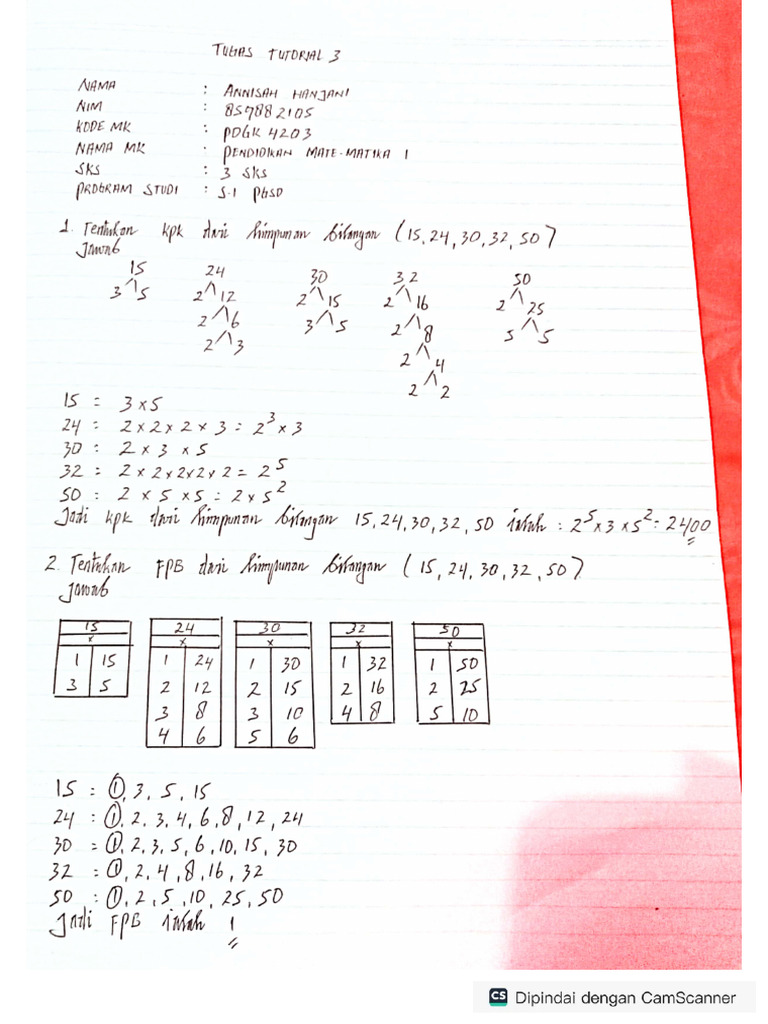 TUGAS TUTORIAL 3
NAMA : ANNISAH HANJANI
NIM : 857882105
KODE MK : PDGK 4203
NAMA MK : PENDIDIKAN MATE-MATIKA 1
SKS : 3 SKS
PROGRAM STUDI : S-1 PGSD
1. Tentukan kpk dari himpunan bilangan (15, 24, 30, 32, 50)
Jawab
15 24 30 32 50
3 5 2 12 2 15 2 16 2 25
2 6 3 5 2 8 5 5
2 3 2 4
2 2
15 = 3 x 5
24 : 2 x 2 x 2 x 3 = 2³ x 3
30 : 2 x 3 x 5
32 = 2 x 2 x 2 x 2 x 2 = 2⁵
50 : 2 x 5 x 5 = 2 x 5²
Jadi kpk dari himpunan bilangan 15, 24, 30, 32, 50 ialah : 2⁵ x 3 x 5² = 2400
2. Tentukan FPB dari himpunan bilangan (15, 24, 30, 32, 50)
Jawab
15 24 30 32 50
x x x x x
1 15 1 24 1 30 1 32 1 50
3 5 2 12 2 15 2 16 2 25
3 8 3 10 4 8 5 10
4 6 5 6
15 : 1, 3, 5, 15
24 : 1, 2, 3, 4, 6, 8, 12, 24
30 = 1, 2, 3, 5, 6, 10, 15, 30
32 = 1, 2, 4, 8, 16, 32
50 : 1, 2, 5, 10, 25, 50
Jadi FPB ialah 1
CS Dipindai dengan CamScanner